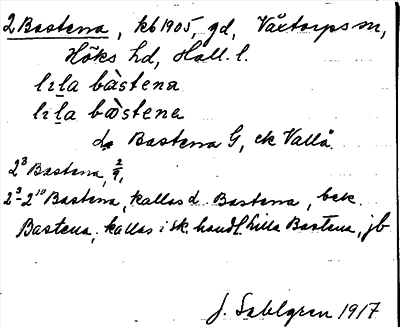 2 Bastena, kb 1905, gd, Våxtorps sn,
Höks hd, Hall. l.
lila bàstena
lila bàstena
da Bastena G, ek Vallå
2³ Bastena, 2/9,
2⁹-2¹⁰ Bastena, kallas d. Bastena, bek.
Bastena, kallas i sk. handl. Lilla Bastena, jb
J. Sahlgren 1917